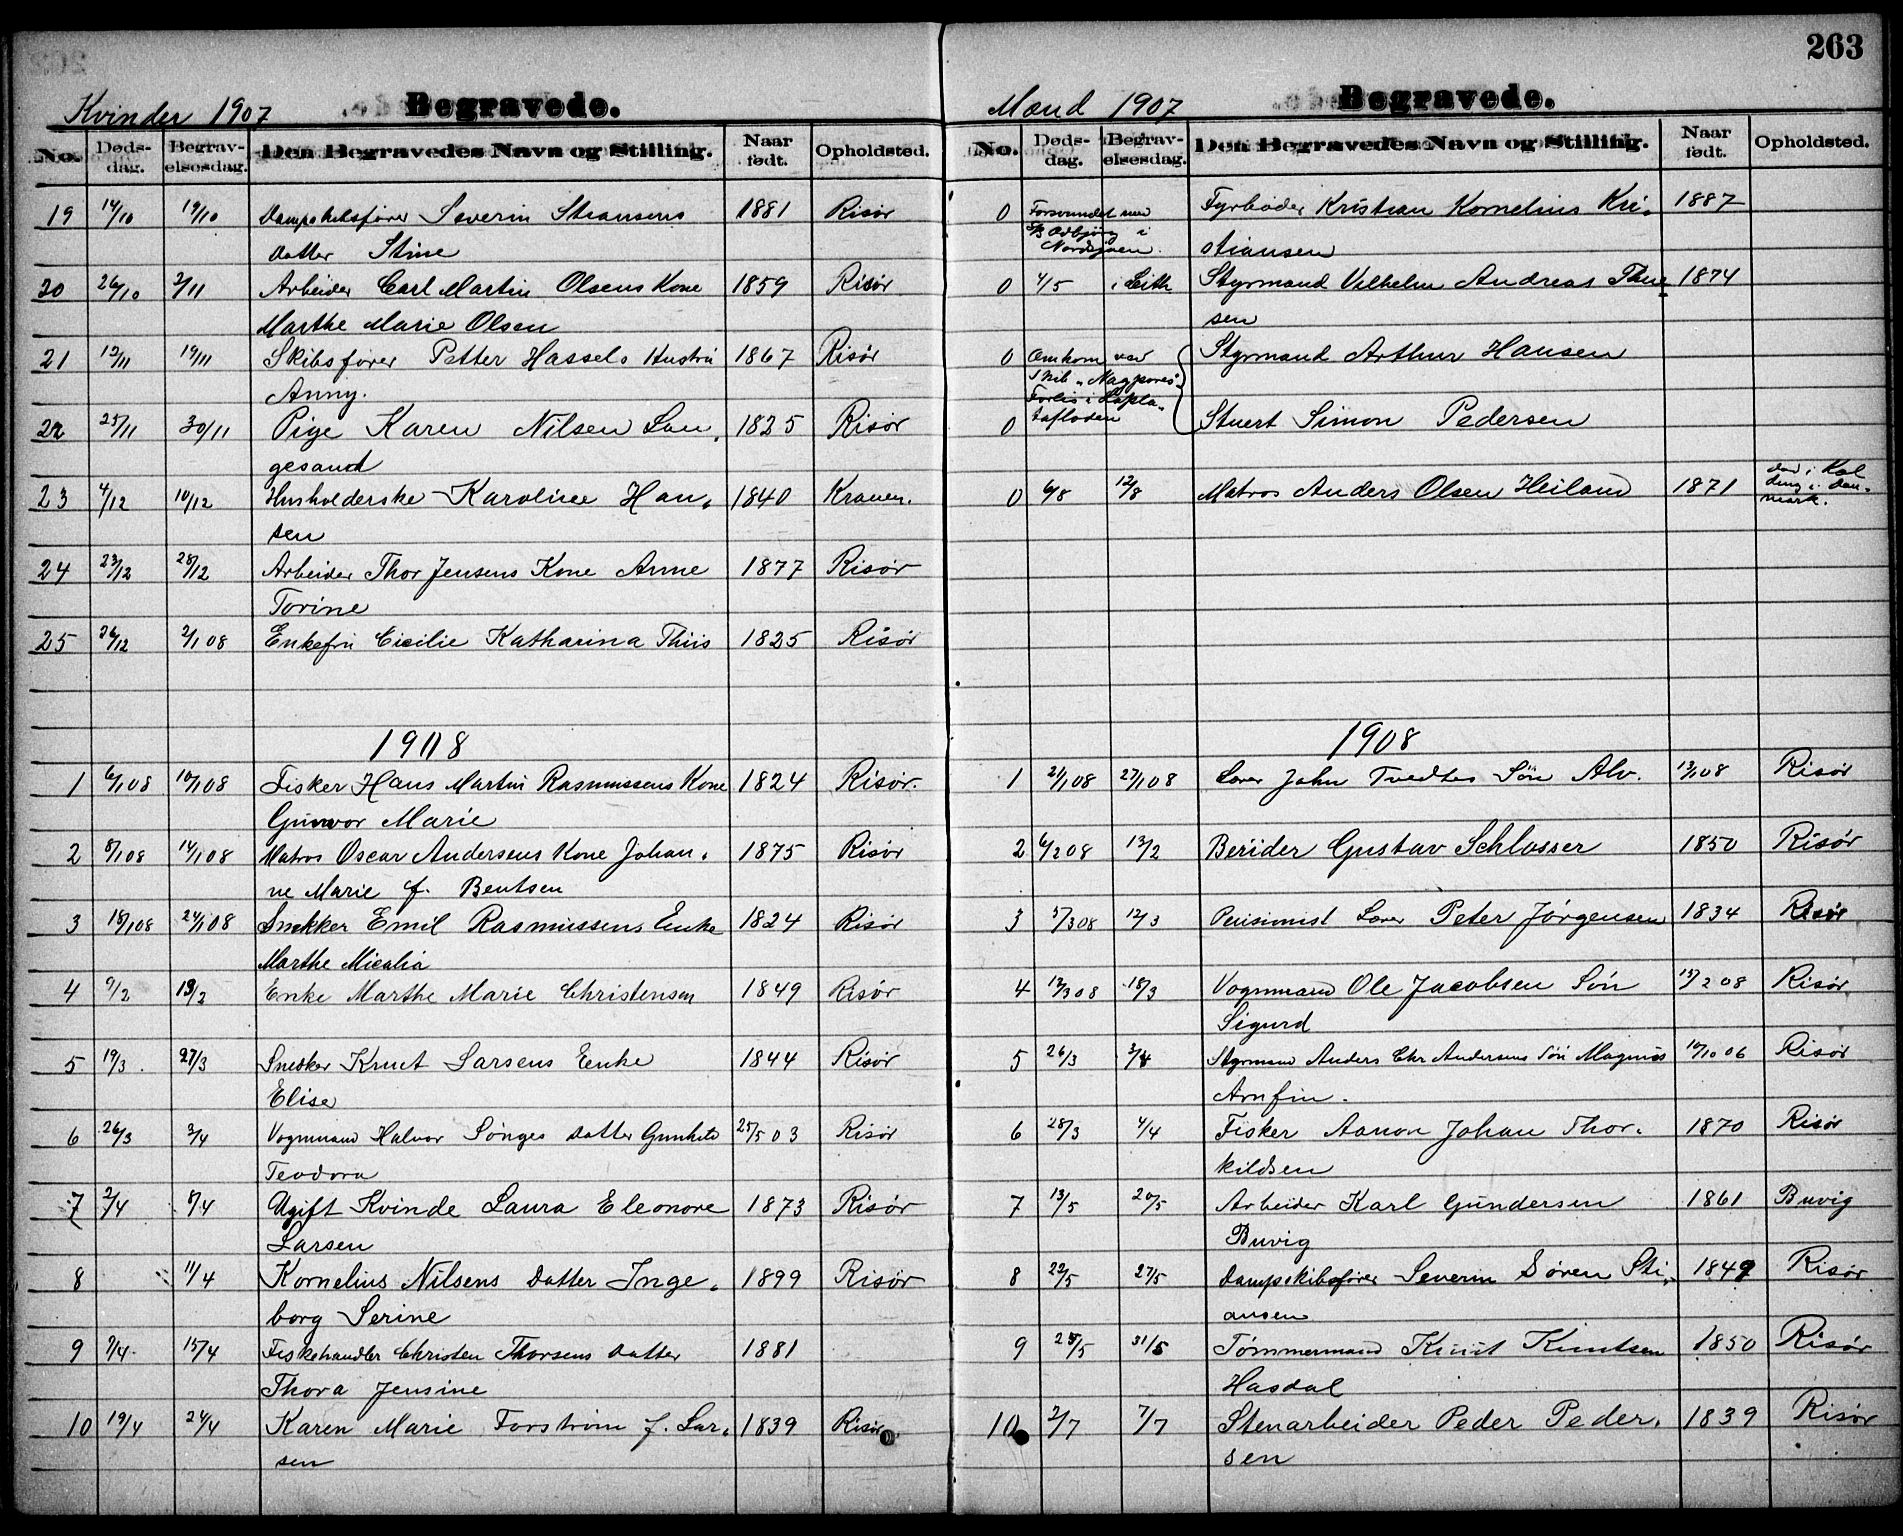 263
Kvinder 1907 Begravede.
No. Døds-dag. Begrav-elsesdag. Den Begravedes Navn og Stilling. Naar født. Opholdsted.
19 14/10 19/10 Dampskibsfører Severin Stiansens 1881 Risør
datter Stine
20 26/10 2/11 Arbeider Carl Martin Olsens Kone 1859 Risør
Marthe Marie Olsen
21 12/11 19/11 Skibsfører Petter Hassels Hustru 1867 Risör
Anny.
22 25/11 30/11 Pige Karen Nilsen Lan, 1825 Risör
gesand
23 4/12 10/12 Husholderske Karoline Han, 1840 Kranen.
sen
24 23/12 28/12 Arbeider Thor Jensens Kone Anne 1877 Risör
Torine
25 26/12 2/1 08 Enkefru Cicilie Katharina Thiis 1825 Risør
1908
1 6/1 08 10/1 08 Fisker Hans Martin Rasmussens Kone 1824 Risör.
Gunvor Marie
2 8/1 08 14/1 08 Matros Oscar Andersens Kone Johan, 1875 Risör
ne Marie f. Bentsen
3 18/1 08 24/1 08 Snekker Emil Rasmussens Enke 1824 Risør
Marthe Micalia
4 9/2 13/2 Enke Marthe Marie Christensen 1849 Risør
5 19/3 27/3 Snekker Knut Larsens Enke 1844 Risör
Elise
6 26/3 3/4 Vognmand Halvor Songes datter Gunhild 25/5 03 Risør
Teodora
7 2/4 8/4 Ugift Kvinde Laura Eleonore 1873 Risør
Larsen
8 11/4 Kornelius Nilsens Datter Inge, 1899 Risør
borg Serine
9 9/4 15/4 Fiskehandler Christen Thorsens datter 1881
Thora Jensine
10 19/4 24/4 Karen Marie Forstrøm f. Lar, 1839 Risør
sen
Mænd 1907 Begravede.
No. Døds-dag. Begrav-elsesdag. Den Begravedes Navn og Stilling. Naar født. Opholdsted.
0 Forsvundet med Fyrbøder Kristian Kornelius Kri, 1887
S/S Adbjørg i
Nordsjøen. stiansen
0 4/5 i Leith Styrmand Vilhelm Andreas Thue 1874
sen
0 Omkom ved Styrmand Arthur Hansen
Skib "Nagpores"
Forlis i Lapla-
0 tafloden Stuert Simon Pedersen
0 6/8 12/8 Matros Anders Olsen Heiland 1871 død i Kol
ding i Dan-
mark.
1908
1 21/1 08 27/1 08 Lærer John Tvedtes Søn Alv. 13/1 08 Risør
2 6/2 08 13/2 Berider Gustav Schlosser 1850 Risør
3 5/3 08 12/3 Pensionist Lærer Peter Jørgensen 1834 Risør
4 12/3 08 18/3 Vognmand Ole Jacobsen Søn 15/2 08 Risør
Sigurd
5 26/3 3/4 Styrmand Anders Chr Andersens Søn Magnus 10/10 06 Risør
Arnfin.
6 28/3 4/4 Fisker Aanon Johan Thor. 1870 Risør
kildsen
7 13/5 20/5 Arbeider Karl Gundersen 1861 Buvig
Buvig
8 22/5 27/5 Dampskibsfører Severin Søren Sti, 1849 Risör
ansen
9 25/5 31/5 Tømmermand Knut Knutsen 1850 Risør
Hasdal
10 2/7 7/7 Stenarbeider Peder Peder, 1839 Risör
sen